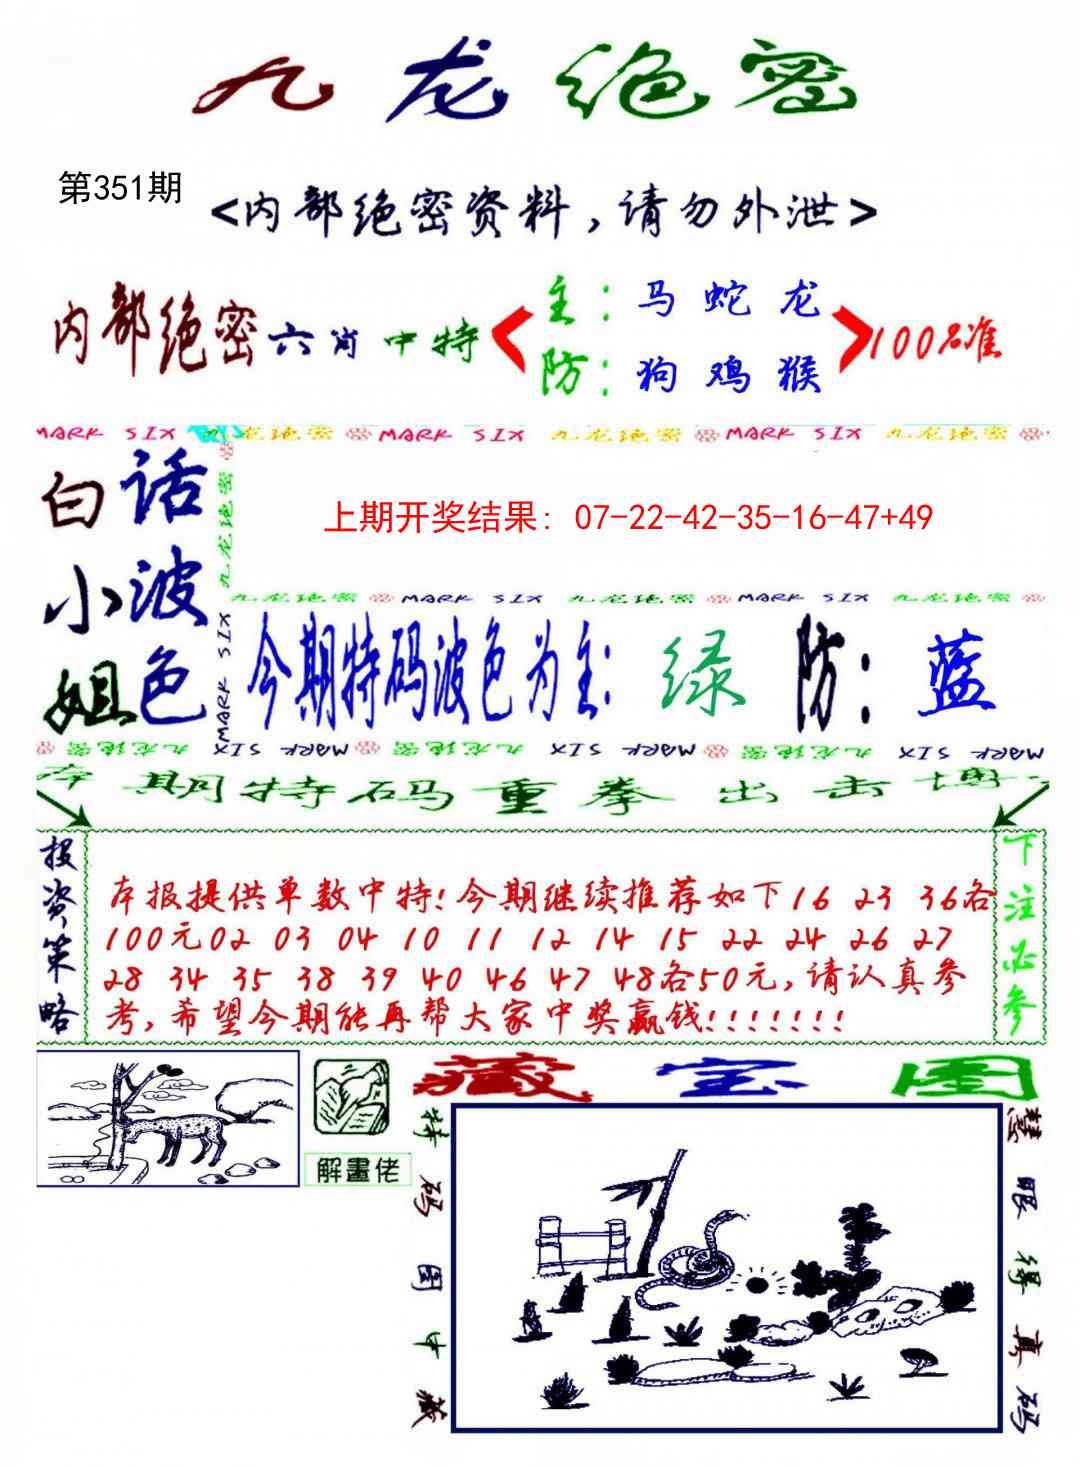 九龙绝密
第351期
<内部绝密资料,请勿外泄>
内部绝密六肖中特
主：马 蛇 龙
防：狗 鸡 猴
100%准
MARK SIX 九龙绝密 MARK SIX 九龙绝密 MARK SIX 九龙绝密
白小姐
话波色
九龙绝密
MARK SIX
上期开奖结果: 07-22-42-35-16-47+49
九龙绝密 MARK SIX 九龙绝密 MARK SIX 九龙绝密
今期特码波色为主：绿 防：蓝
九龙绝密 MARK SIX 九龙绝密 MARK SIX 九龙绝密 MARK SIX
本期特码重拳出击博
投资策略
本报提供单数中特!今期继续推荐如下16 23 36各
100元02 03 04 10 11 12 14 15 22 24 26 27
28 34 35 38 39 40 46 47 48各50元,请认真参
考,希望今期能再帮大家中奖赢钱!!!!!!!
下注必参
解畫佬
藏宝图
特码图中藏
慧眼得真码